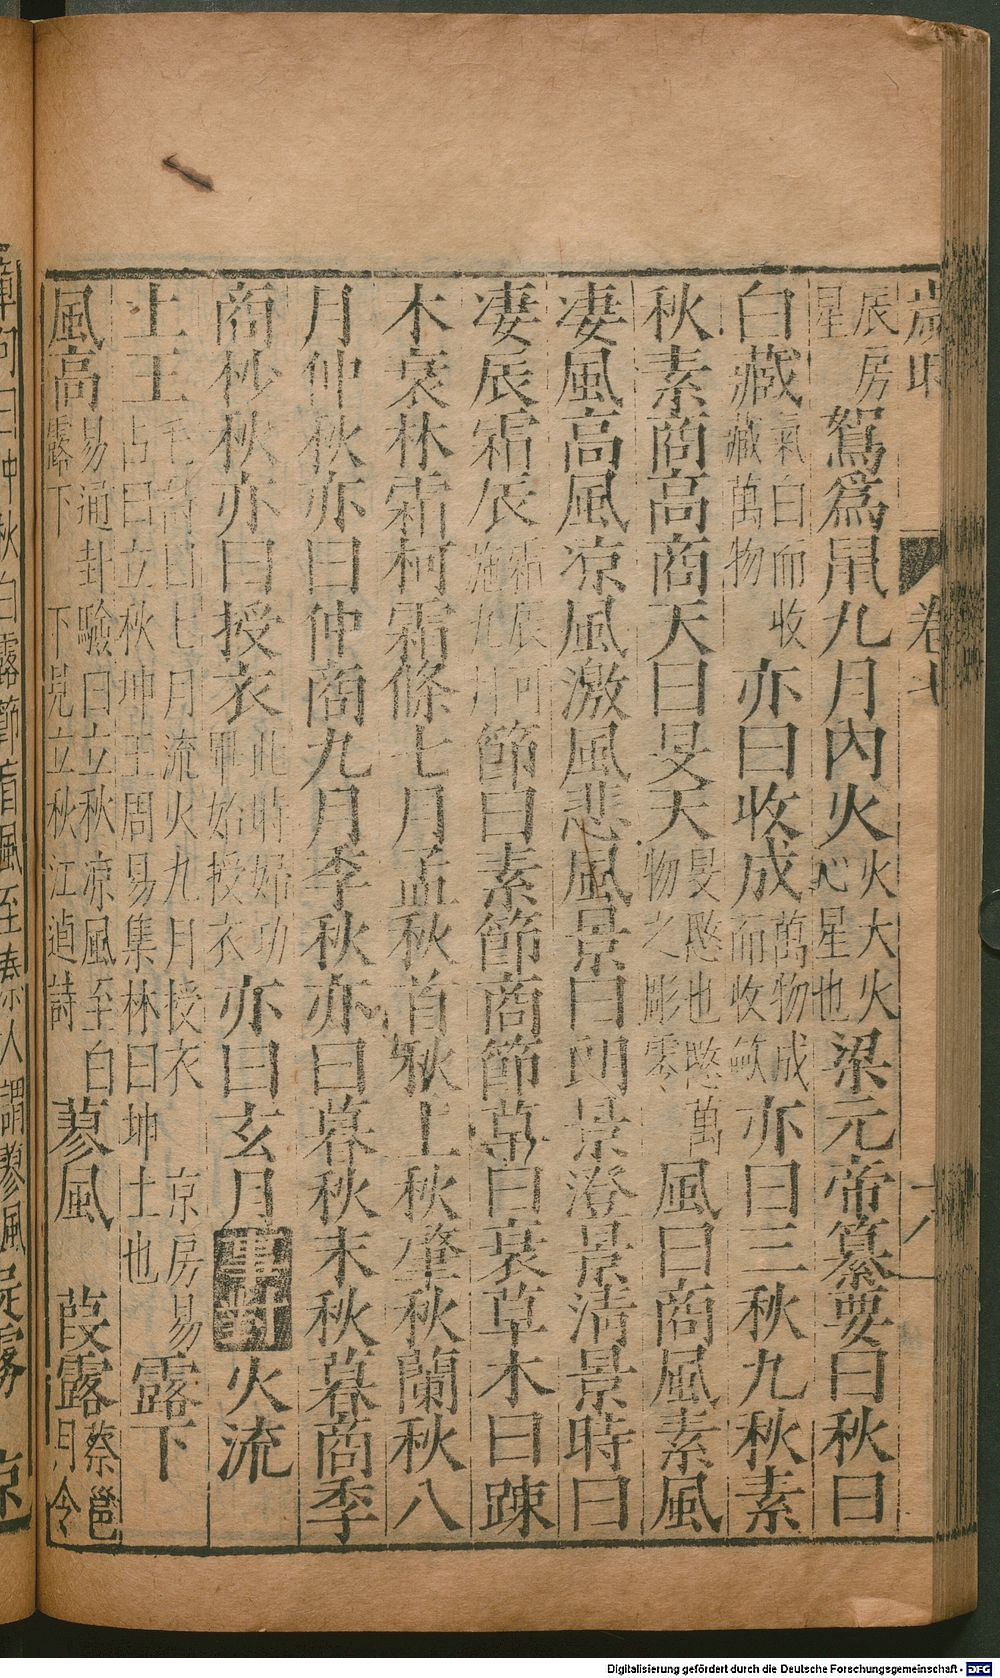 歲時
卷七
十八
辰房星 駕為鼠九月內火 火大火心星也 梁元帝纂要曰秋曰
白藏 氣白而收藏萬物 亦曰收成 萬物成而收斂 亦曰三秋九秋素
秋素商高商天曰旻天 旻愍也愍萬物之彫零 風曰商風素風
凄風高風凉風激風悲風景曰朗景澄景清景時曰
凄辰霜辰 節曰素節商節草曰衰草木曰踈
木衰林霜柯霜條七月孟秋首秋上秋肇秋蘭秋八
月仲秋亦曰仲商九月季秋亦曰暮秋末秋暮商季
商杪秋亦曰授衣 此時婦功畢始授衣 亦曰玄月 事對 火流
土王 毛詩曰七月流火九月授衣 京房易占曰立秋坤王周易集林曰坤土也 露下
風高 易通卦驗曰立秋凉風至白露下 下見立秋江逌詩 蓼風 葭露 蔡邕月令
章句曰仲秋白露節盲風至秦人謂蓼風
Digitalisierung gefördert durch die Deutsche Forschungsgemeinschaft - DFG